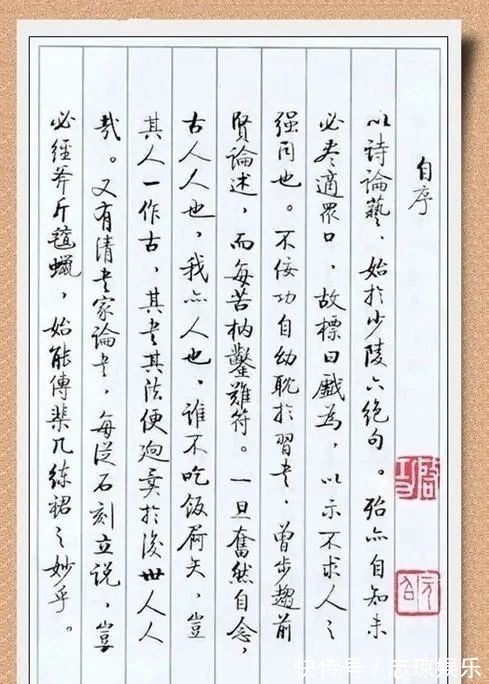 自序
以詩論藝，始於少陵六絕句。殆亦自知未
必盡適眾口，故標曰戲為，以示不求人之
强同也。不佞功自幼耽於習書，曾步趨前
賢論述，而每苦枘鑿難符。一旦奮然自念，
古人人也，我亦人也，誰不吃飯屙矢，豈
其人一作古，其書其法便迥異於後世人人
哉。又有清書家論書，每從石刻立說，豈
必經斧斤氊蠟，始能傳棐几練裙之妙乎。
啓功
元白
快传号/志琼娱乐